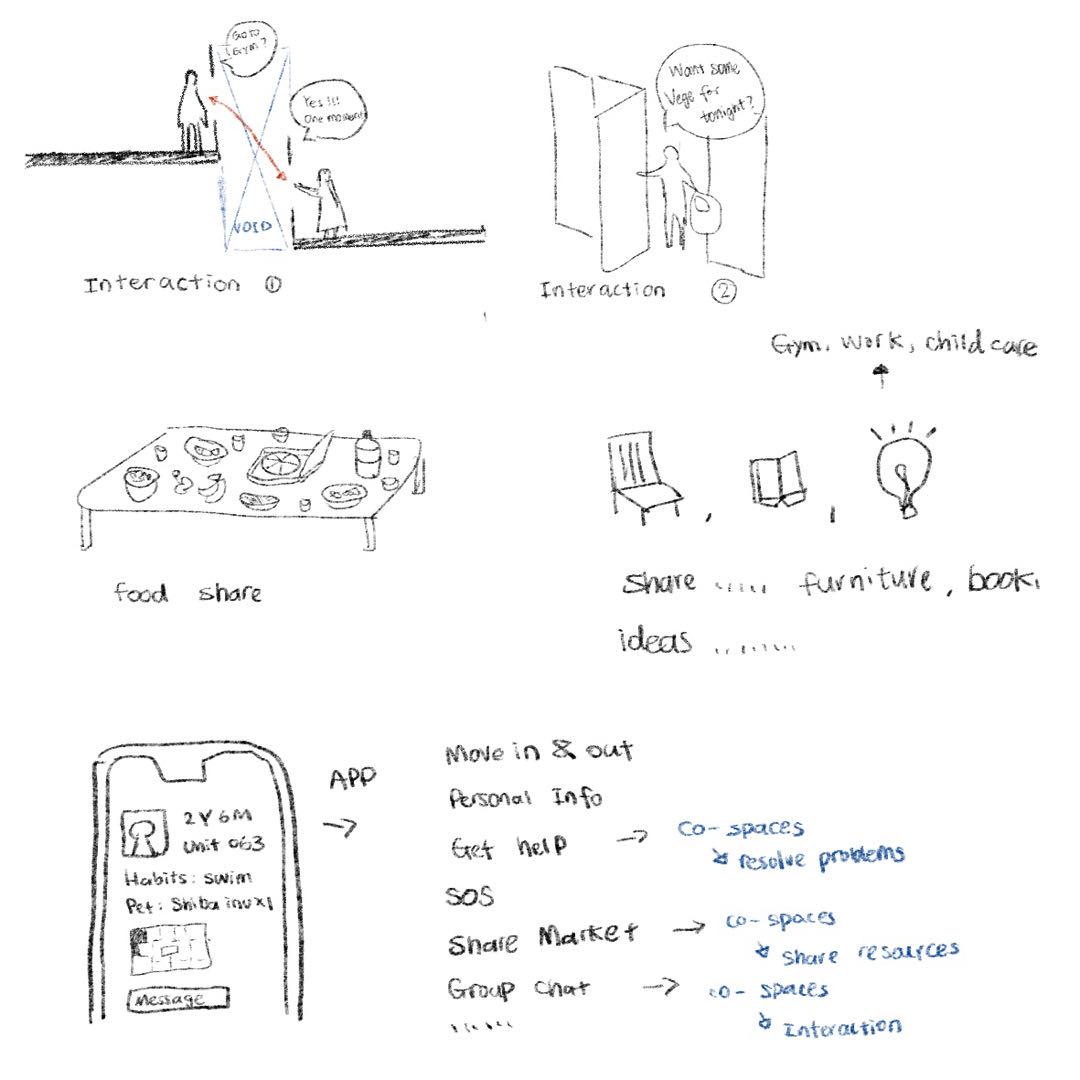 Go to
Gym?
Yes !!!
One moment
VOID
Interaction ①
Want some
Vege for
tonight?
Interaction ②
Gym, work, child care
food share
share ..... furniture, book,
ideas ........
2Y 6M
Unit 063
Habits: swim
Pet: Shiba inu x1
Message
APP
Move in & out
Personal Info
Get help → co-spaces
↘ resolve problems
SOS
Share Market → co-spaces
↘ share resources
Group chat → co-spaces
↘ Interaction
......